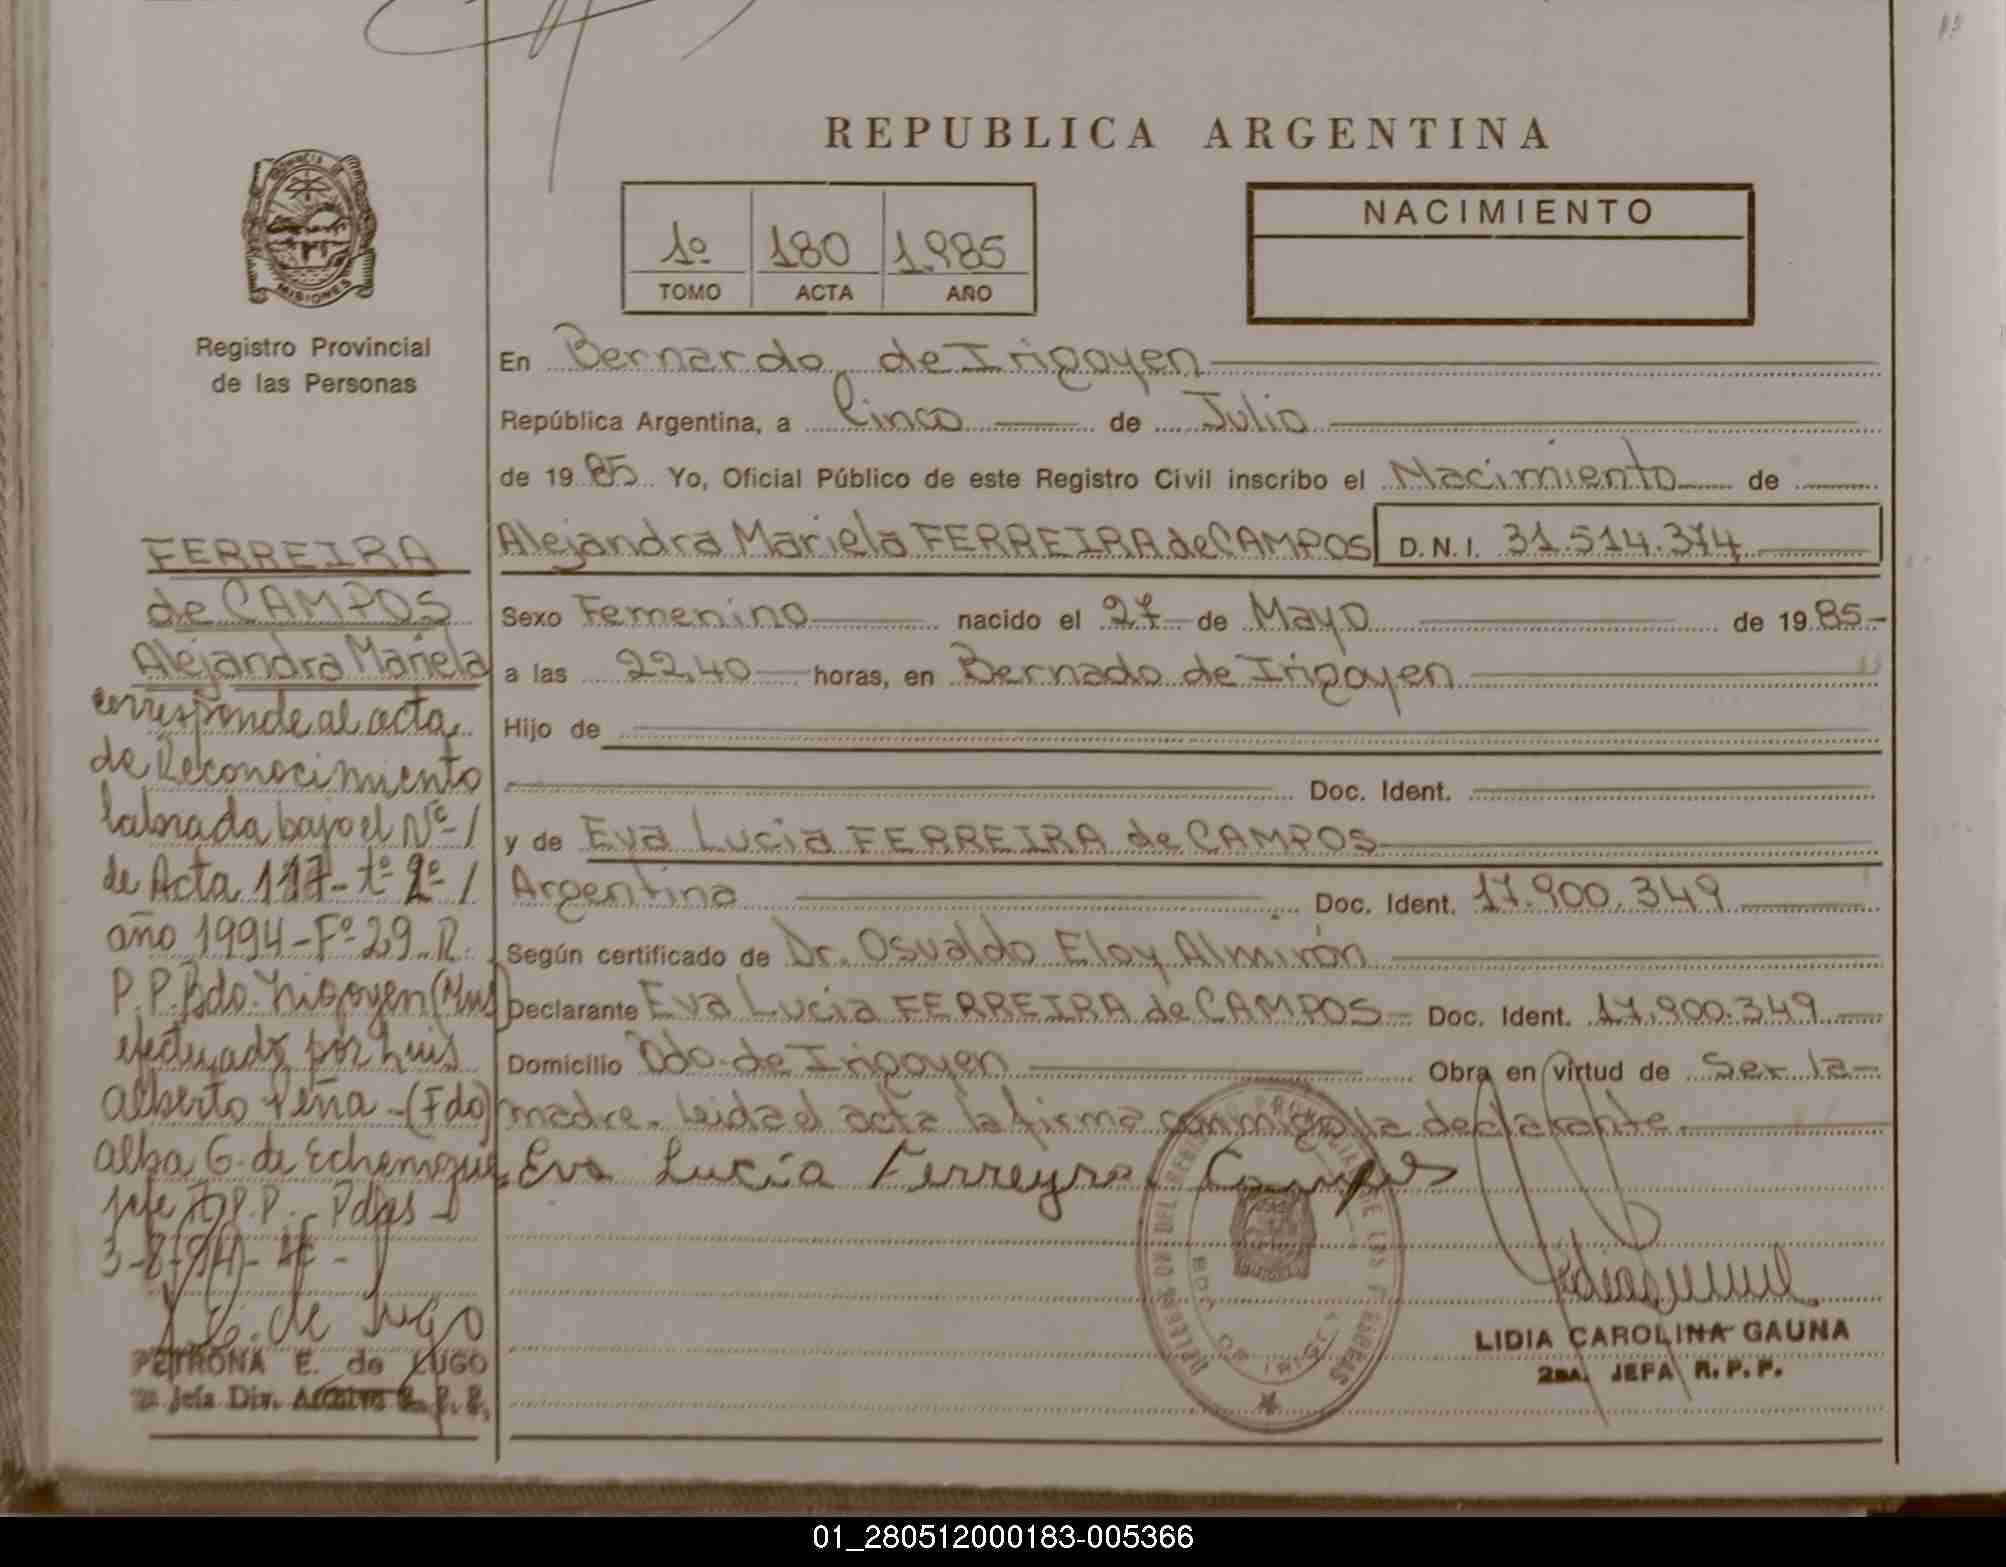 REPUBLICA ARGENTINA
PROVINCIA DE
MISIONES
Registro Provincial
de las Personas
1º 180 1.985
TOMO ACTA AÑO
NACIMIENTO
En Bernardo de Irigoyen
República Argentina, a Cinco de Julio
de 1985 Yo, Oficial Público de este Registro Civil inscribo el Nacimiento de
Alejandra Mariela FERREIRA de CAMPOS D.N.I. 31.514.374
Sexo Femenino nacido el 27 de Mayo de 1985-
a las 22,40 horas, en Bernado de Irigoyen
Hijo de
Doc. Ident.
y de Eva Lucia FERREIRA de CAMPOS
Argentina Doc. Ident. 17.900.349
Según certificado de Dr. Osvaldo Eloy Almirón
Declarante Eva Lucia FERREIRA de CAMPOS- Doc. Ident. 17.900.349
Domicilio Bdo. de Irigoyen Obra en virtud de Ser la-
madre. Leida el acta la firma conmigo la declarante.
Eva Lucía Ferreyra Campos
LIDIA CAROLINA GAUNA
2DA. JEFA R.P.P.
FERREIRA
de CAMPOS
Alejandra Mariela
corresponde al acta
de Reconocimiento
labrada bajo el Nº-/
de Acta 117- tº 2º /
año 1994-Fº 29-R.
P.P. Bdo. Irigoyen (Mnes)
efectuado por Luis
Alberto Peña-(Fdo)
Alba G. de Echenique
jefe R.P.P.- Pdas
3-8-94-
E. de Lugo
PETRONA E. de LUGO
Jefa Div. Archivo R.P.P.
01_280512000183-005366